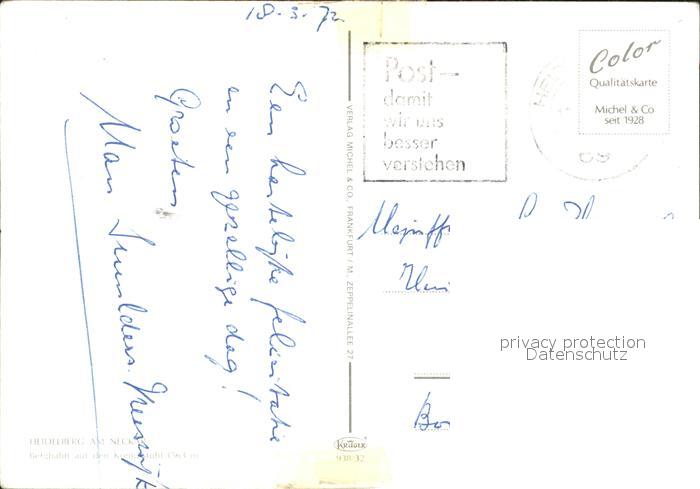 18-3-72
Een hartelijke felicitatie
en een gezellige dag!
Groeten
HEIDELBERG AM NECKAR
Bergbahn auf den Königstuhl (563 m)
VERLAG MICHEL & CO., FRANKFURT / M. ZEPPELINALLEE 27
Post—
damit
wir uns
besser
verstehen
Color
Qualitätskarte
Michel & Co
seit 1928
69
Mejuffr
privacy protection
Datenschutz
Bo
KRÜGER
938/32